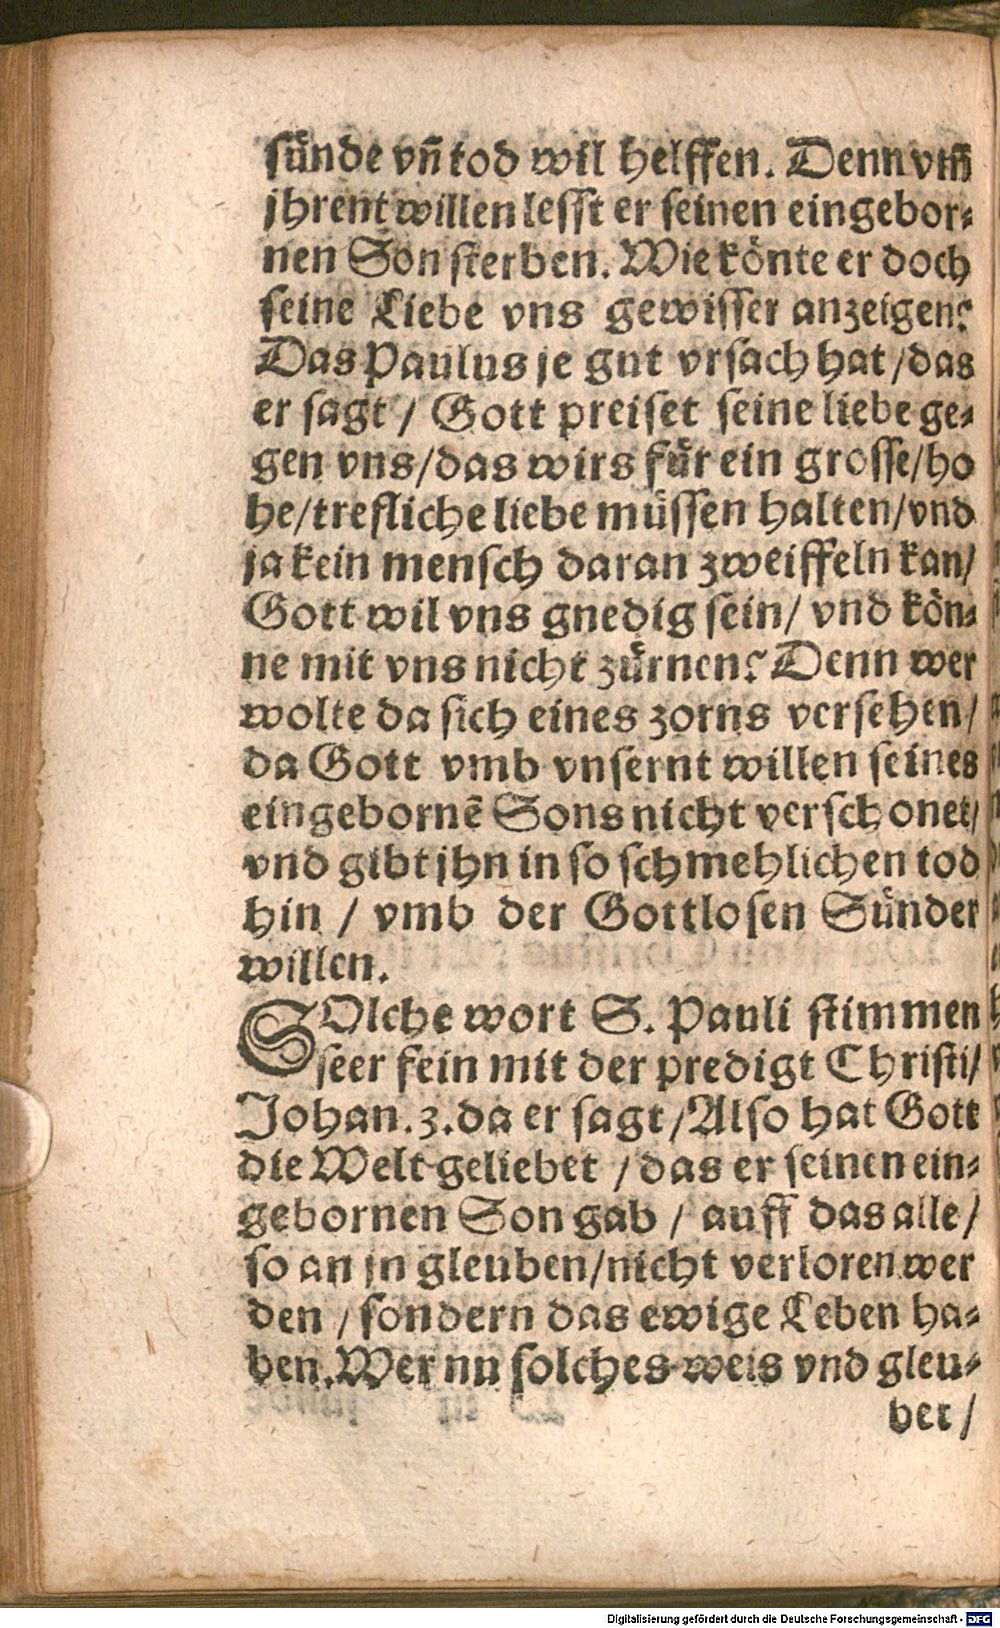 sünde vñ tod wil helffen. Denn vm̃
jhrent willen lesst er seinen eingebor⸗
nen Son sterben. Wie könte er doch
seine Liebe vns gewisser anzeigen?
Das Paulus je gut vrsach hat / das
er sagt / Gott preiset seine liebe ge⸗
gen vns / das wirs für ein grosse / ho
he / trefliche liebe müssen halten / vnd
ja kein mensch daran zweiffeln kan /
Gott wil vns gnedig sein / vnd kön⸗
ne mit vns nicht zürnen? Denn wer
wolte da sich eines zorns versehen /
da Gott vmb vnsernt willen seines
eingebornẽ Sons nicht verschonet /
vnd gibt jhn in so schmehlichen tod
hin / vmb der Gottlosen Sünder
willen.
SOlche wort S. Pauli stimmen
seer fein mit der predigt Christi /
Johan. 3. da er sagt / Also hat Gott
die Welt geliebet / das er seinen ein⸗
gebornen Son gab / auff das alle /
so an jn gleuben / nicht verloren wer
den / sondern das ewige Leben ha⸗
ben. Wer nu solches weis vnd gleu⸗
bet /
Digitalisierung gefördert durch die Deutsche Forschungsgemeinschaft - DFG